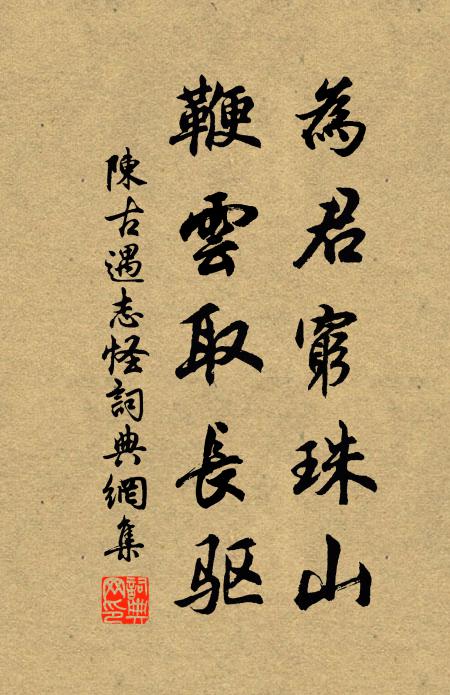 為君窮珠山
鞭雲取長驱
陳古遇志怪詞典網集
詞典网印